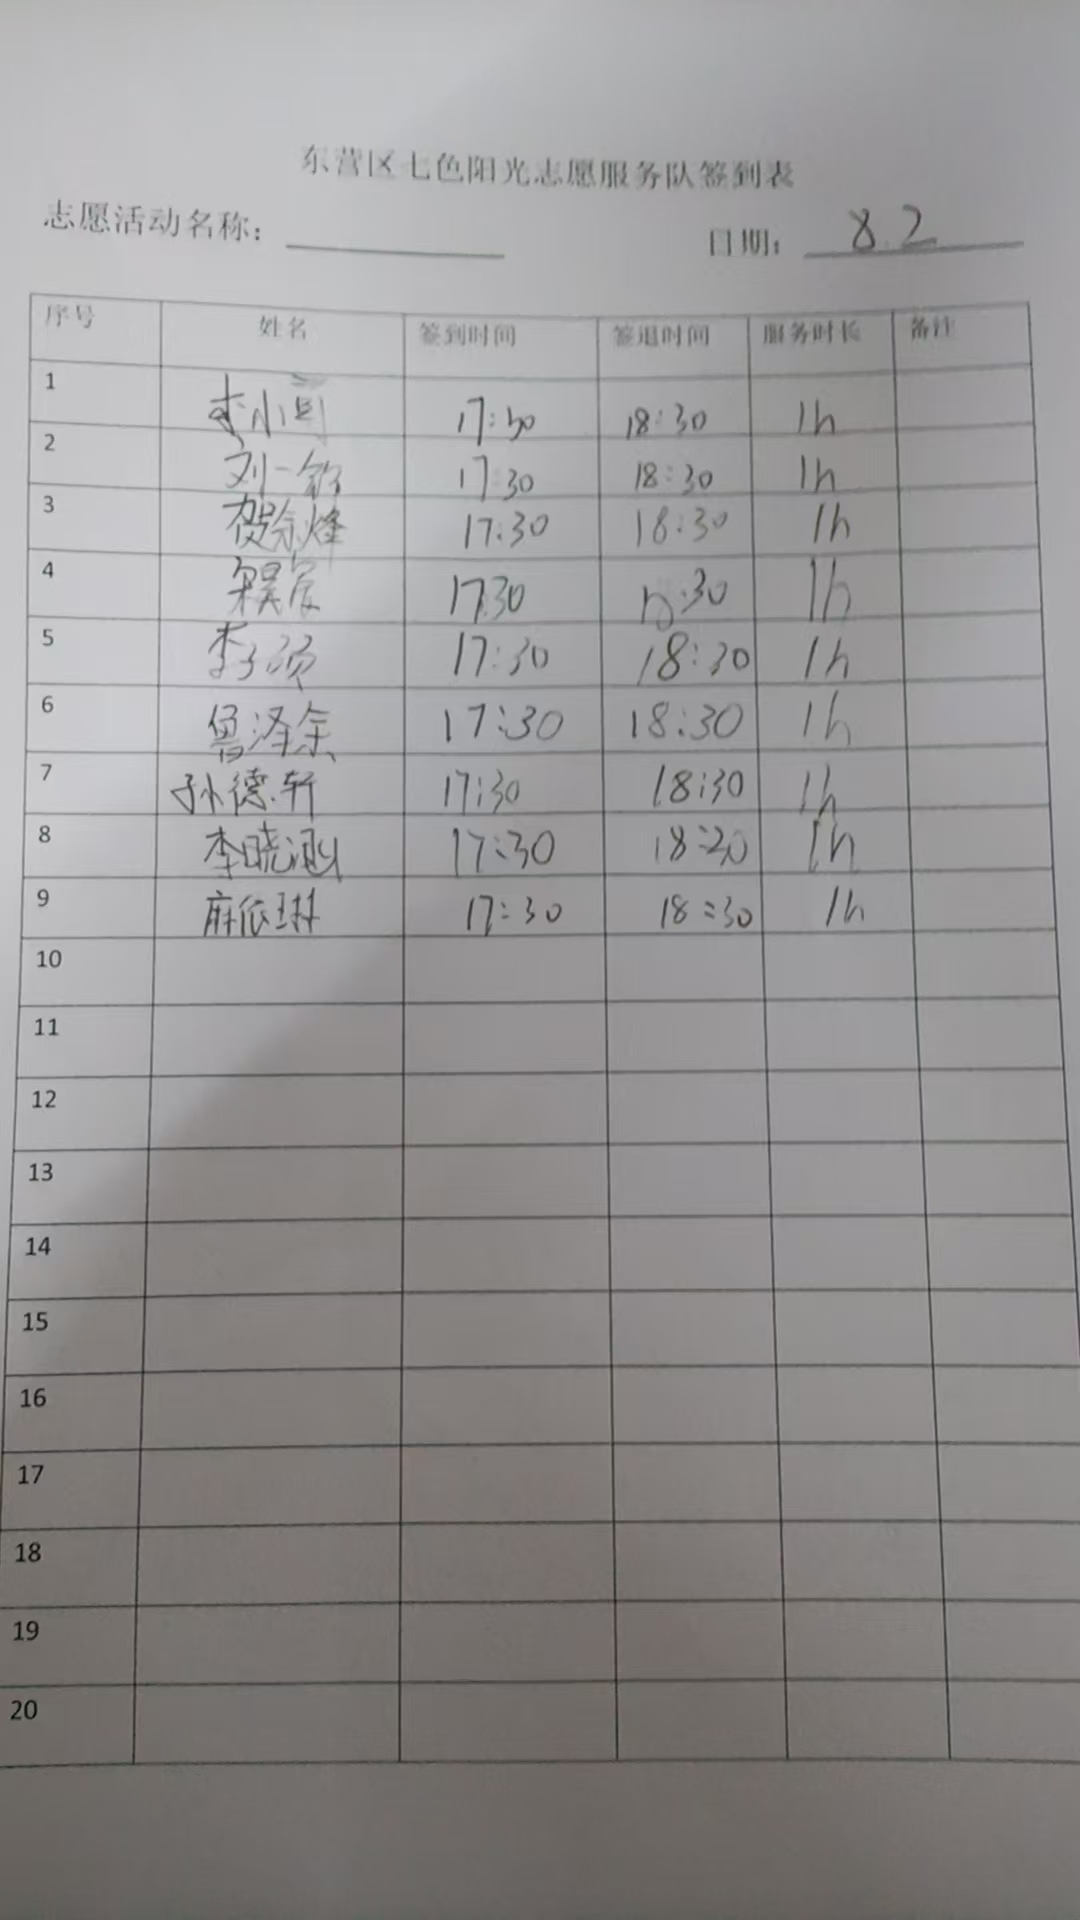 东营区七色阳光志愿服务队签到表
志愿活动名称： 日期： 8.2
序号 姓名 签到时间 签退时间 服务时长 备注
1 17:30 18:30 1h
2 刘一 17:30 18:30 1h
3 贺徐烽 17:30 18:30 1h
4 17:30 :30 1h
5 李子 17:30 18:30 1h
6 鲁泽余 17:30 18:30 1h
7 孙德轩 17:30 18:30 1h
8 李晓涵 17:30 18:30 1h
9 麻依琳 17:30 18:30 1h
10
11
12
13
14
15
16
17
18
19
20